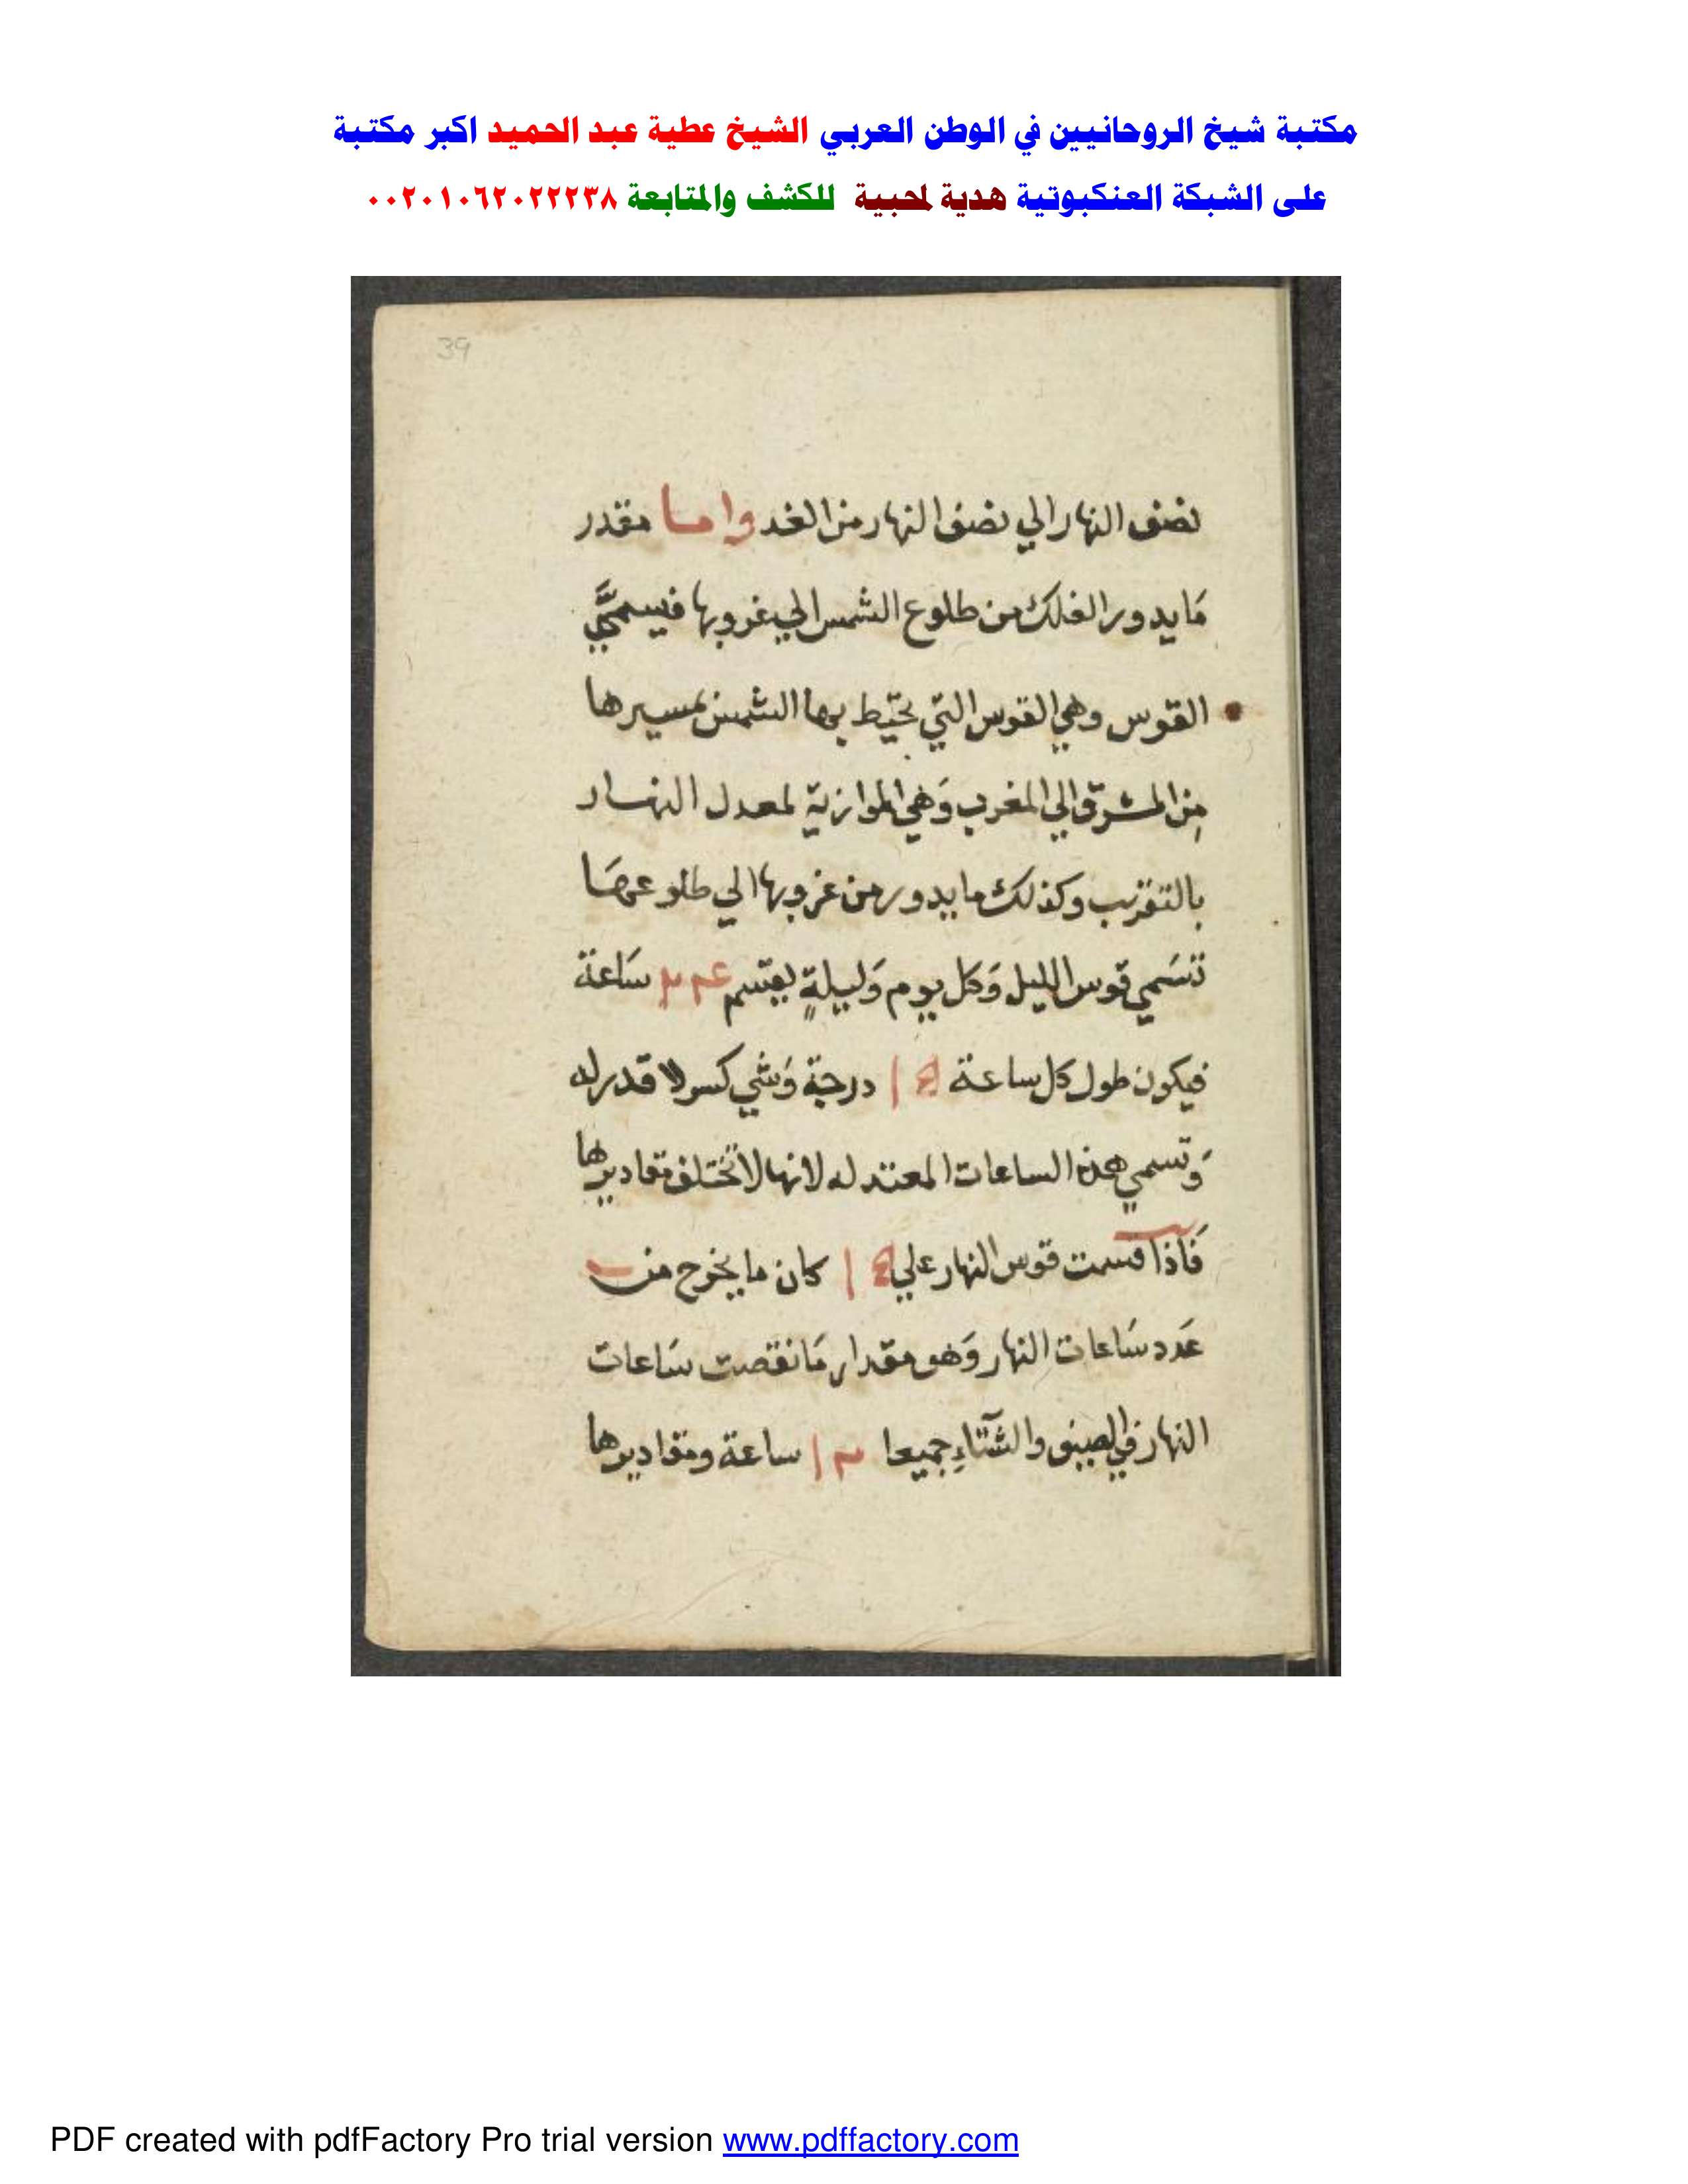 مكتبة شيخ الروحانيين في الوطن العربي الشيخ عطية عبد الحميد اكبر مكتبة
على الشبكة العنكبوتية هدية لمحبية للكشف والمتابعة ٠٠٢٠١٠٦٢٠٢٢٢٣٨
39
نصف النهار الي نصف النهار من الغد واما مقدر
مَا يدور الفلك من طلوع الشمس الي غروبها فيسمي
القوس وهي القوس التي تحيط بها الشمس بمسيرها
من المشرق الي المغرب وَهي الموازية لمعدل النهار
بالتقريب وكذلك ما يدور من غروبها الي طلوعها
تسَمي قوس الليل وَكل يوم وَليلةٍ يقسم ساعة
فيكون طول كل ساعة درجة وَشي كسر لا قدر له
وَتسمي هذه الساعات المعتدله لانها لا تختلف مقاديرها
فَاذا قسمت قوس النهار علي كان ما يخرج من
عَدد سَاعات النهار وَهو مقدار مَا نقصت سَاعات
النهار في الصيف والشتاءِ جميعا ساعة ومقاديرها
PDF created with pdfFactory Pro trial version www.pdffactory.com